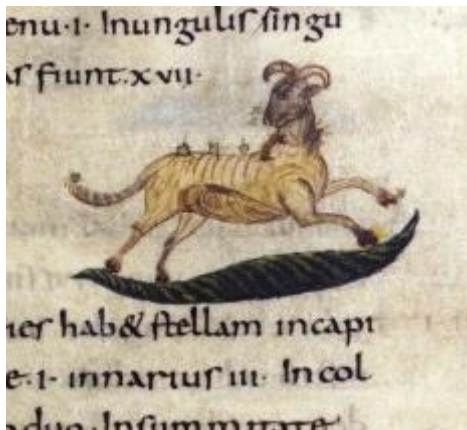 enu·i· Inungulis singu
as fiunt·xvii·
ier hab& stellam incapi
e·i· innarius iii· Incol
duo· Insummitate